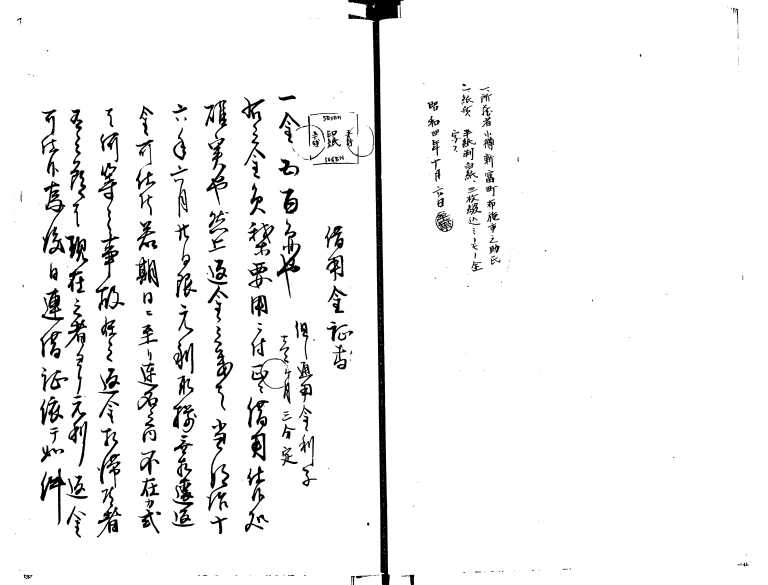 一所蔵者 小樽新富町 布施市之助氏
一紙質 半紙判白紙 三枚綴込ミノモノ 全
写ス
昭和四年十月六日
借用金証書
但シ通用金利子
壱ケ月三分定
一金五百円也
印紙
右之金負業要用ニ付正ニ借用仕候処
確実也然上返金之義ハ当明治十
六年六月廿日限元利取揃無相違返
金可仕候若期日ニ至リ連名之内不在或
ハ何等之事故
現在之者ヨリ元利返金
可仕候為後日連借証依テ如件